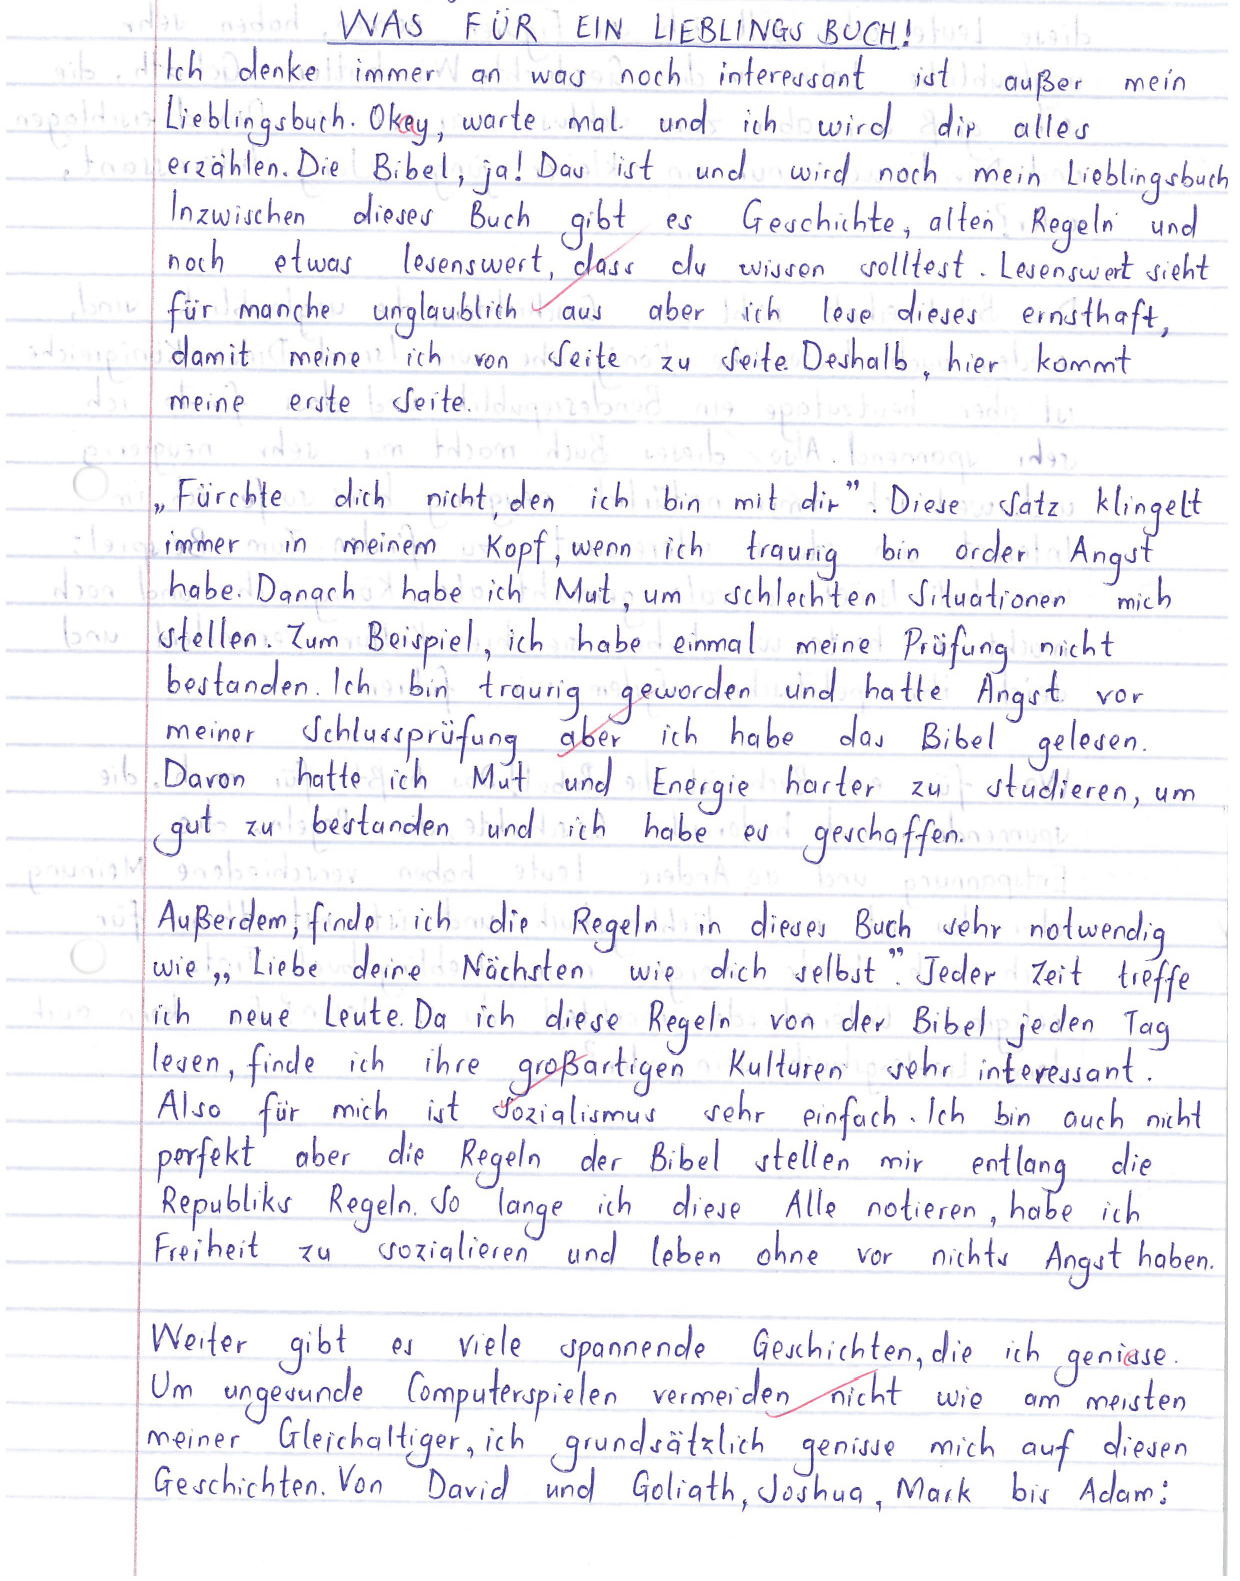 WAS FÜR EIN LIEBLINGSBUCH!
Ich denke immer an was noch interessant ist außer mein
Lieblingsbuch. Okey, warte mal und ich wird dir alles
erzählen. Die Bibel, ja! Das ist und wird noch mein Lieblingsbuch
Inzwischen dieses Buch gibt es Geschichte, alten Regeln und
noch etwas lesenswert, dass du wissen solltest. Lesenswert sieht
für manche unglaublich aus aber ich lese dieses ernsthaft,
damit meine ich von Seite zu Seite. Deshalb, hier kommt
meine erste Seite.
„Fürchte dich nicht, den ich bin mit dir”. Diese Satz klingelt
immer in meinem Kopf, wenn ich traurig bin order Angst
habe. Danach habe ich Mut, um schlechten Situationen mich
stellen. Zum Beispiel, ich habe einmal meine Prüfung nicht
bestanden. Ich bin traurig geworden und hatte Angst vor
meiner Schlussprüfung aber ich habe das Bibel gelesen.
Davon hatte ich Mut und Energie harter zu studieren, um
gut zu bestanden und ich habe es geschaffen.
Außerdem, finde ich die Regeln in dieses Buch sehr notwendig
wie „Liebe deine Nächsten wie dich selbst”. Jeder Zeit treffe
ich neue Leute. Da ich diese Regeln von der Bibel jeden Tag
lesen, finde ich ihre großartigen Kulturen sehr interessant.
Also für mich ist Sozialismus sehr einfach. Ich bin auch nicht
perfekt aber die Regeln der Bibel stellen mir entlang die
Republiks Regeln. So lange ich diese Alle notieren, habe ich
Freiheit zu sozialieren und leben ohne vor nichts Angst haben.
Weiter gibt es viele spannende Geschichten, die ich genisse.
Um ungesunde Computerspielen vermeiden nicht wie am meisten
meiner Gleichaltiger, ich grundsätzlich genisse mich auf diesen
Geschichten. Von David und Goliath, Joshua, Mark bis Adam: